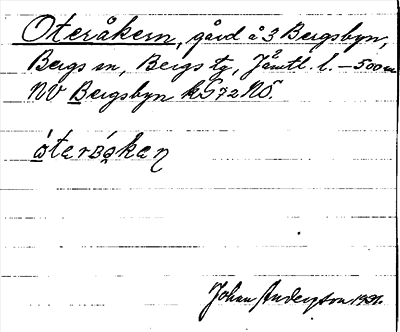 Oteråkern, gård å 3 Bergsbyn,
Bergs sn, Bergs tg, Jämtl. l. – 500 m
NV Bergsbyn k 572 NÖ.
óteråkeɲ
Johan Anderson 1931.